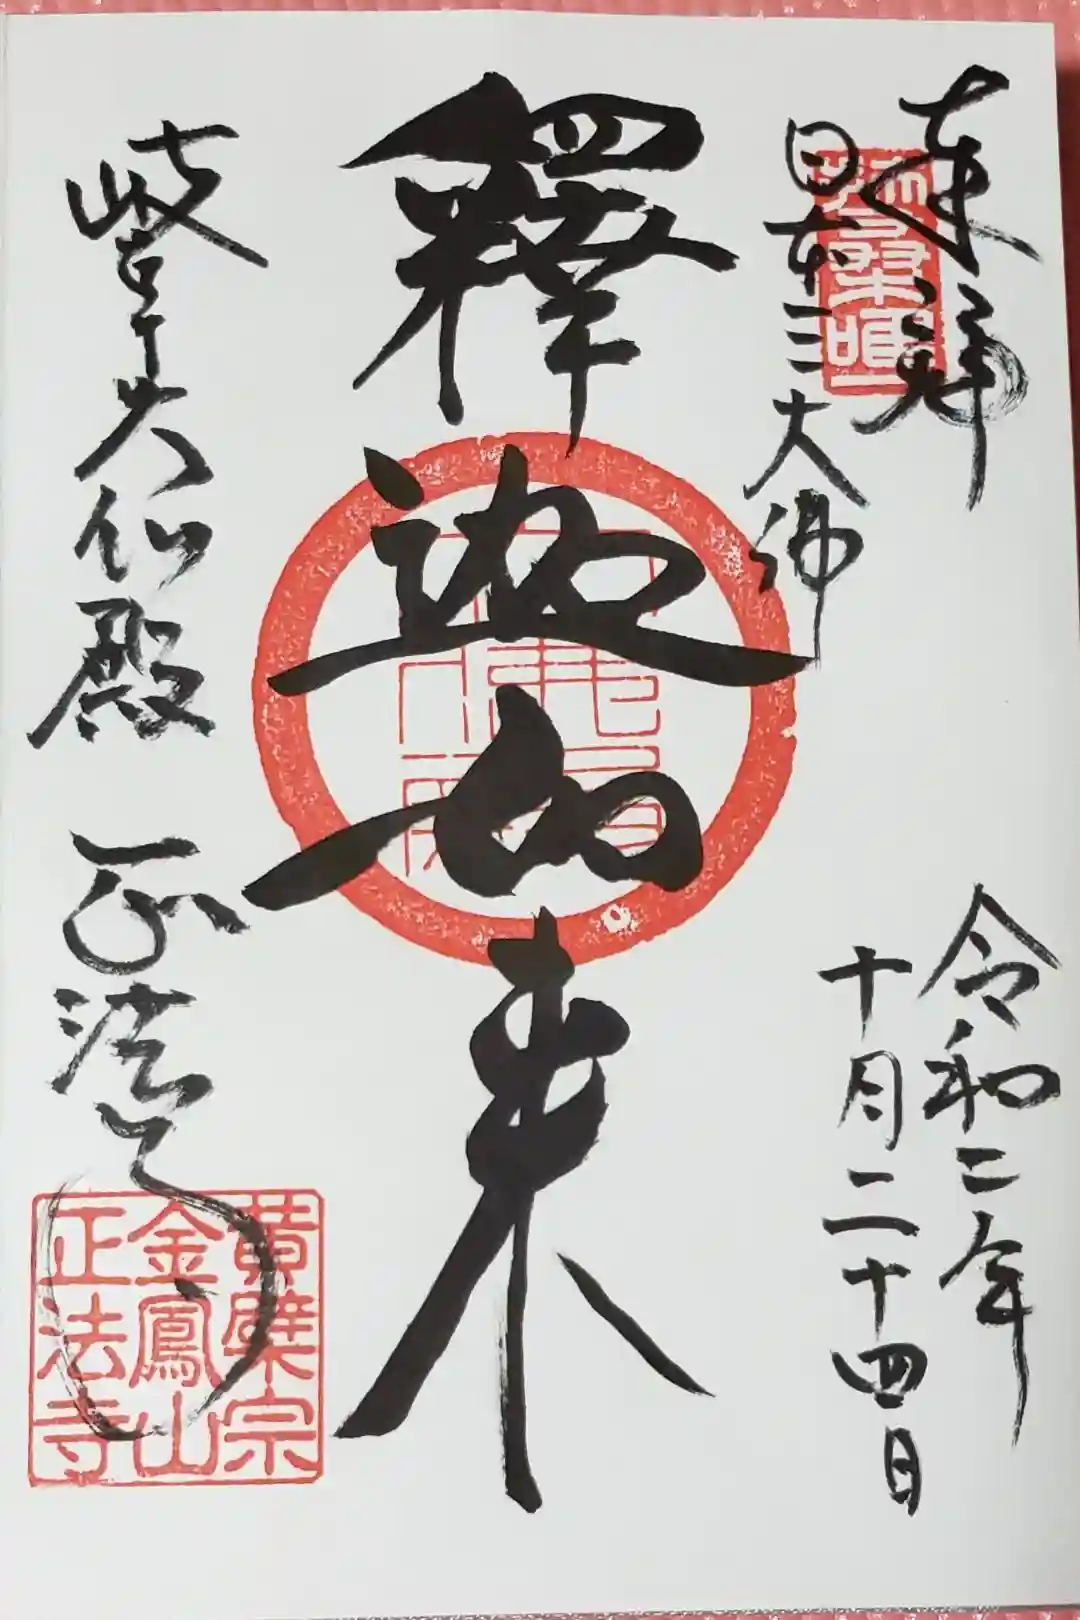 奉拝
日本三大佛
令和二年
十月二十四日
釋迦如来
岐阜大仏殿
正法寺
黄檗宗
金鳳山
正法寺